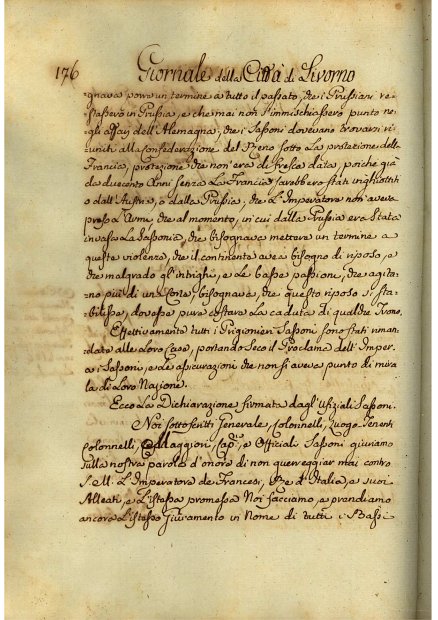 176 Giornale della Città di Livorno
gnava porre un termine a tutto il passato, che i Prussiani re-
stassero in Prussia, e che mai non s'immischiassero punto ne-
gli affari dell'Alemagna; che i Sassoni dovevano trovarsi ri-
uniti alla Confederazione del Reno sotto La protezione della
Francia, protezione che non era di fresca data, poiche già
da duecento Anni senza La Francia sarebbero stati inghiottiti
o dall'Austria, o dalla Prussia; che L'Imperatore non aveva
preso L'Armi che al momento, in cui dalla Prussia era Stata
invasa La Sassonia, che bisognava mettere un termine a
queste violenze, che il continente avea bisogno di riposo, e
che malgrado gl'intrighi, e Le basse passioni, che agita-
no più di una Corte, bisognava, che questo riposo si sta-
bilisse, dovesse pure costare La caduta di qualche Trono.
Effettivamente tutti i Prigionieri Sassoni sono stati riman-
date alle Loro Case, portando Seco il Proclama dell'Impera
a i Sassoni, e Le assicurazioni che non si aveva punto di mira
la di Loro Nazione.
Ecco La Dichiarazione firmata dagl'Ufiziali Sassoni.
Noi sottoscritti Generale, Colonnelli, Luogo Tenenti
Colonnelli, Maggiori, Cap.ⁿⁱ e Officiali Sassoni giuriamo
sulla nostra parola d'onore di non guerreggiar mai contro
S. M. L'Imperatore de Francesi, Re d'Italia, e suoi
Alleati, e L'istessa promessa Noi facciamo, e prendiamo
ancora L'istesso Giuramento in Nome di tutti i Bassi